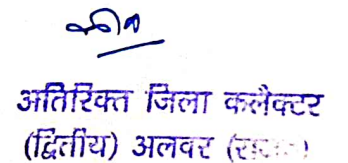 अतिरिक्त जिला कलैक्टर
(द्वितीय) अलवर